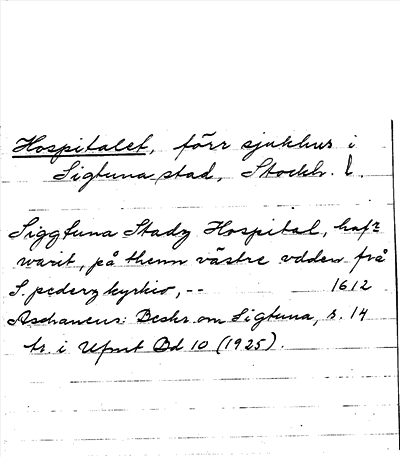 Hospitalet, förr sjukhus i
Sigtuna stad, Stockh. l.
Siggtuna Stadz Hospital, haf:r
warit, på thenn västre vdden frå
S. pederz kyrkio, -- 1612
Aschaneus: Beskr. om Sigtuna, s. 14
tr. i Ufmt Bd 10 (1925).